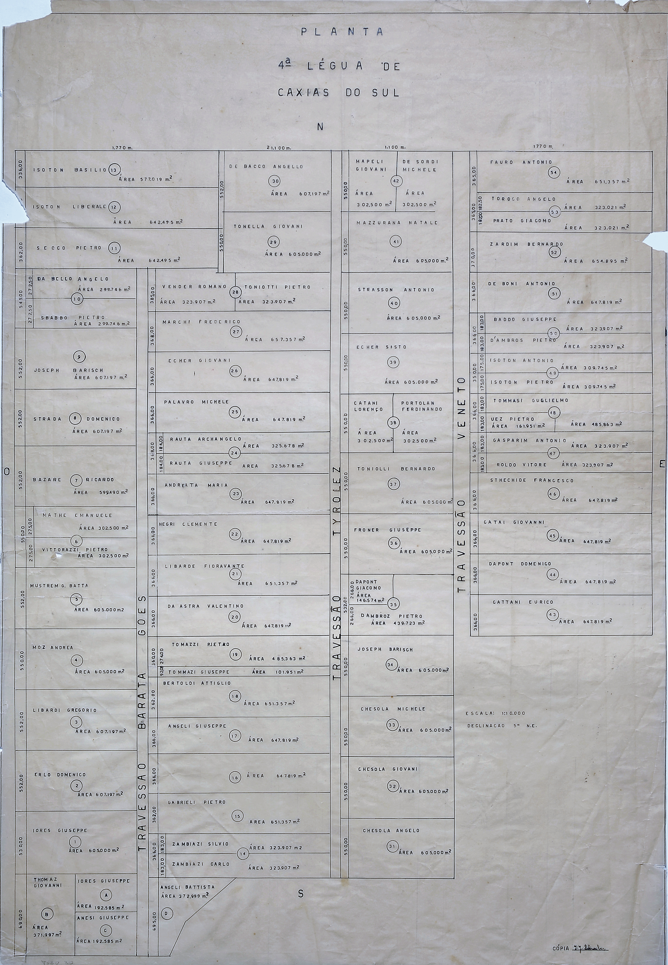 PLANTA
4ª LÉGUA DE
CAXIAS DO SUL
N
1.770 m.
1.100 m.
1.770 m.
ISOTON BASILIO 13
ÁREA 577.019 m²
ISOTON LIBERALE 12
ÁREA 642.495 m²
SECCO PIETRO 11
ÁREA 642.495 m²
DA BELLO ANGELO
ÁREA 299.766 m²
10
SBABBO PIETRO
ÁREA 299.766 m²
9
JOSEPH BARISCH
ÁREA 607.197 m²
STRADA 8 DOMENICO
ÁREA 607.197 m²
7 RICARDO
ÁREA 599.490 m²
MATHE EMANUELE
ÁREA 302.500 m²
6
VITTORAZZI PIETRO
ÁREA 302.500 m²
MUSTREM G. BATTA
5
ÁREA 605.000 m²
MOZ ANDREA
4
ÁREA 605.000 m²
LIBARDI GREGORIO
3
ÁREA 607.197 m²
FALO DOMENICO
2
ÁREA 607.197 m²
IORES GIUSEPPE
1
ÁREA 605.000 m²
THOMAZ GIOVANNI
B
ÁREA 371.497 m²
IORES GIUSEPPE
A
ÁREA 192.585 m²
ANESI GIUSEPPE
C
ÁREA 192.585 m²
TRAVESSÃO BARATA GOES
DE BACCO ANGELLO
30
ÁREA 607.197 m²
TONELLA GIOVANI
29
ÁREA 605.000 m²
VENDER ROMANO
ÁREA 323.907 m²
28
TONIOTTI PIETRO
ÁREA 323.907 m²
MARCHI FREDERICO
27
ÁREA 657.357 m²
ECHER GIOVANI
26
ÁREA 647.819 m²
PALAVRO MICHELE
25
ÁREA 647.819 m²
RAUTA ARCHANGELO
ÁREA 325.678 m²
24
RAUTA GIUSEPPE
ÁREA 325.678 m²
ANDREATA MARIA
23
ÁREA 647.819 m²
NEGRI CLEMENTE
22
ÁREA 647.819 m²
LIBARDE FIORAVANTE
21
ÁREA 651.357 m²
DA ASTRA VALENTINO
20
ÁREA 647.819 m²
TOMAZZI PIETRO
19
ÁREA 485.863 m²
TOMMAZI GIUSEPPE ÁREA 161.951 m²
BERTOLDI ATTIGLIO
18
ÁREA 651.357 m²
ANGELI GIUSEPPE
17
ÁREA 647.819 m²
16
ÁREA 647.819 m²
GABRIELI PIETRO
15
ÁREA 651.357 m²
ZAMBIAZI SILVIO
ÁREA 323.907 m²
14
ZAMBIAZI CARLO
ÁREA 323.907 m²
ANGELI BATTISTA
ÁREA 272.989 m²
D
TRAVESSÃO TYROLEZ
MAPELI GIOVANI
ÁREA 302.500 m²
42
DE SORDI MICHELE
ÁREA 302.500 m²
MAZZURANA NATALE
41
ÁREA 605.000 m²
STRASSON ANTONIO
40
ÁREA 605.000 m²
ECHER SISTO
39
ÁREA 605.000 m²
CATANI LORENÇO
ÁREA 302.500 m²
38
PORTOLAN FERDINANDO
ÁREA 302.500 m²
TONIOLLI BERNARDO
37
ÁREA 605.000 m²
FRONER GIUSEPPE
36
ÁREA 605.000 m²
DAPONT GIACOMO
ÁREA 146.574 m²
35
DAMBROZ PIETRO
ÁREA 439.723 m²
JOSEPH BARISCH
34
ÁREA 605.000 m²
CHESOLA MICHELE
33
ÁREA 605.000 m²
CHESOLA GIOVANI
32
ÁREA 605.000 m²
CHESOLA ANGELO
31
ÁREA 605.000 m²
TRAVESSÃO VENETO
FAURO ANTONIO
54
ÁREA 651.357 m²
ANGELO
ÁREA 323.021 m²
53
PRATO GIACOMO
ÁREA 323.021 m²
ZARDIM BERNARDO
52
ÁREA 654.895 m²
DE BONI ANTONIO
51
ÁREA 647.819 m²
BAODO GIUSEPPE
ÁREA 323.907 m²
50
D'AMBROS PIETRO
ÁREA 323.907 m²
ISOTON ANTONIO
ÁREA 309.745 m²
49
ISOTON PIETRO
ÁREA 309.745 m²
TOMMASI GUGLIELMO
48
VEZ PIETRO
ÁREA 161.951 m²
ÁREA 485.863 m²
GASPARIM ANTONIO
ÁREA 323.907 m²
47
ROLDO VITORE ÁREA 323.907 m²
STHECHIDE FRANCESCO
46
ÁREA 647.819 m²
CATAI GIOVANNI
45
ÁREA 647.819 m²
DAPONT DOMENICO
44
ÁREA 647.819 m²
CATTANI EURICO
43
ÁREA 647.819 m²
O
E
ESCALA 1:10.000
DECLINAÇÃO 5° N.E.
S
CÓPIA